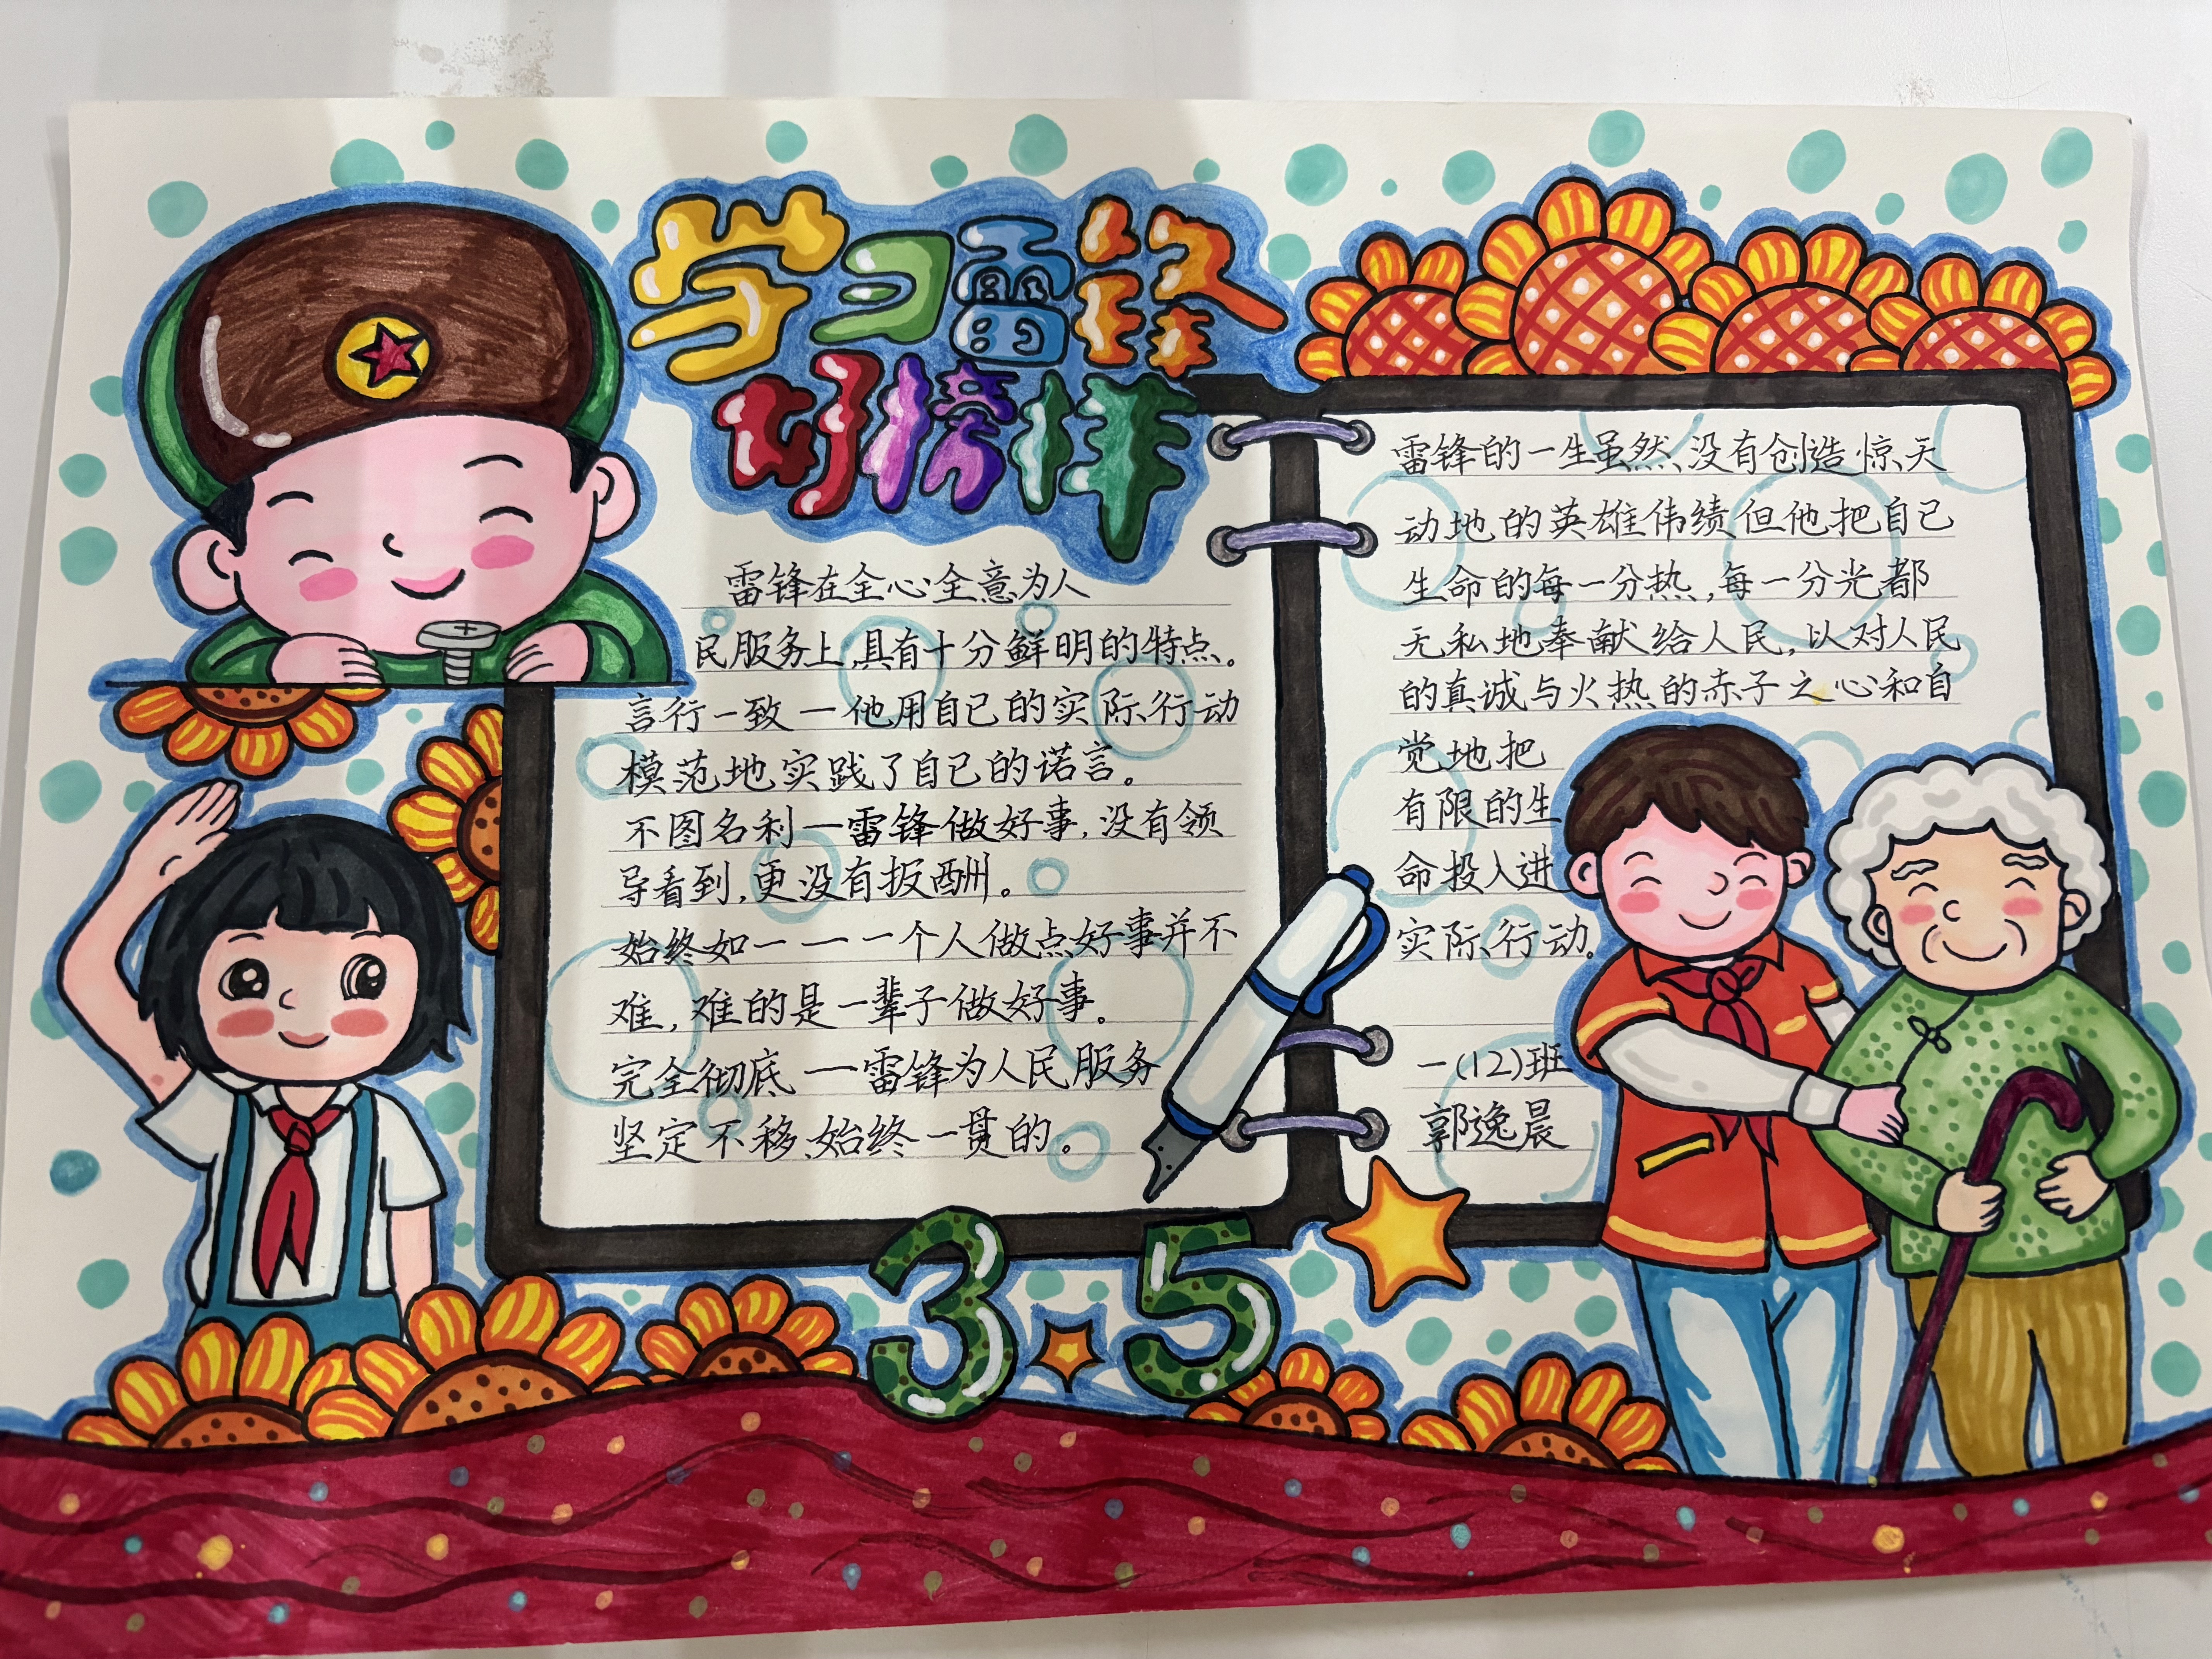 学习雷锋
好榜样
雷锋在全心全意为人
民服务上,具有十分鲜明的特点。
言行一致一他用自己的实际行动
模范地实践了自己的诺言。
不图名利一雷锋做好事,没有领
导看到,更没有报酬。
始终如一一一个人做点好事并不
难,难的是一辈子做好事。
完全彻底一雷锋为人民服务
坚定不移、始终一贯的。
雷锋的一生虽然没有创造惊天
动地的英雄伟绩但他把自己
生命的每一分热,每一分光都
无私地奉献给人民,以对人民
的真诚与火热的赤子之心和自
觉地把
有限的生
命投入进
实际行动。
一(12)班
郭逸晨
3·5